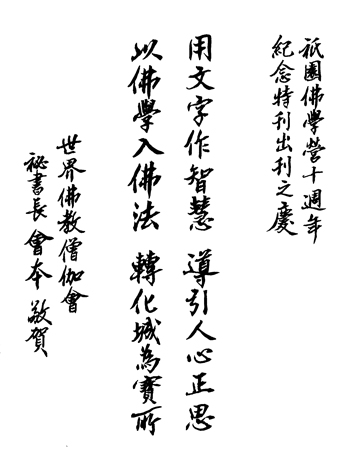 祇園佛學營十週年
紀念特刊出刊之慶
用文字作智慧 導引人心正思
以佛學入佛法 轉化城為寶所
世界佛教僧伽會
祕書長 會本 敬賀